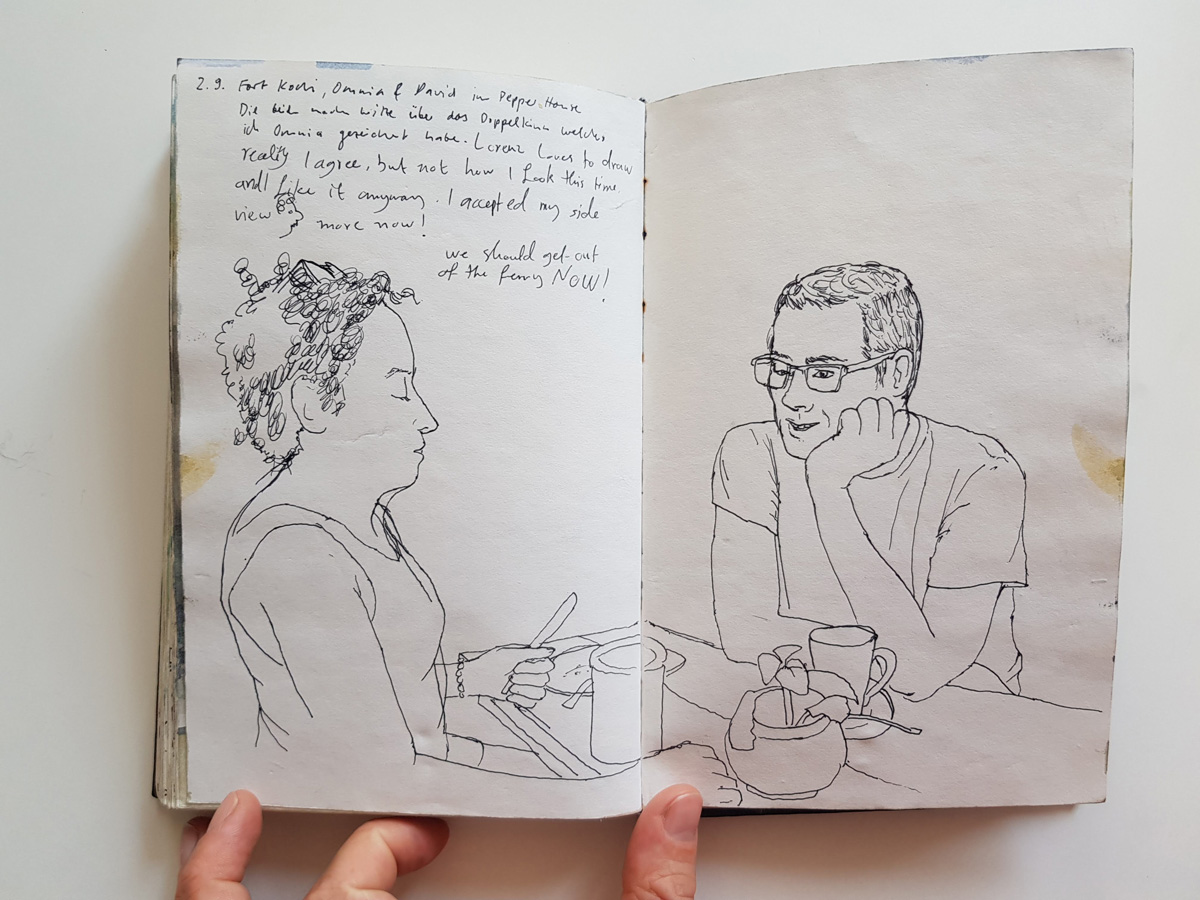 2.9. Fort Kochi, Omnia & David im Pepper House
Die beiden machen Witze über das Doppelkinn welches
ich Omnia gezeichnet habe. Lorenz Loves to draw
reality I agree, but not how I Look this time.
and I Like it anyway. I accepted my side
view more now!
we should get out
of the ferry NOW!